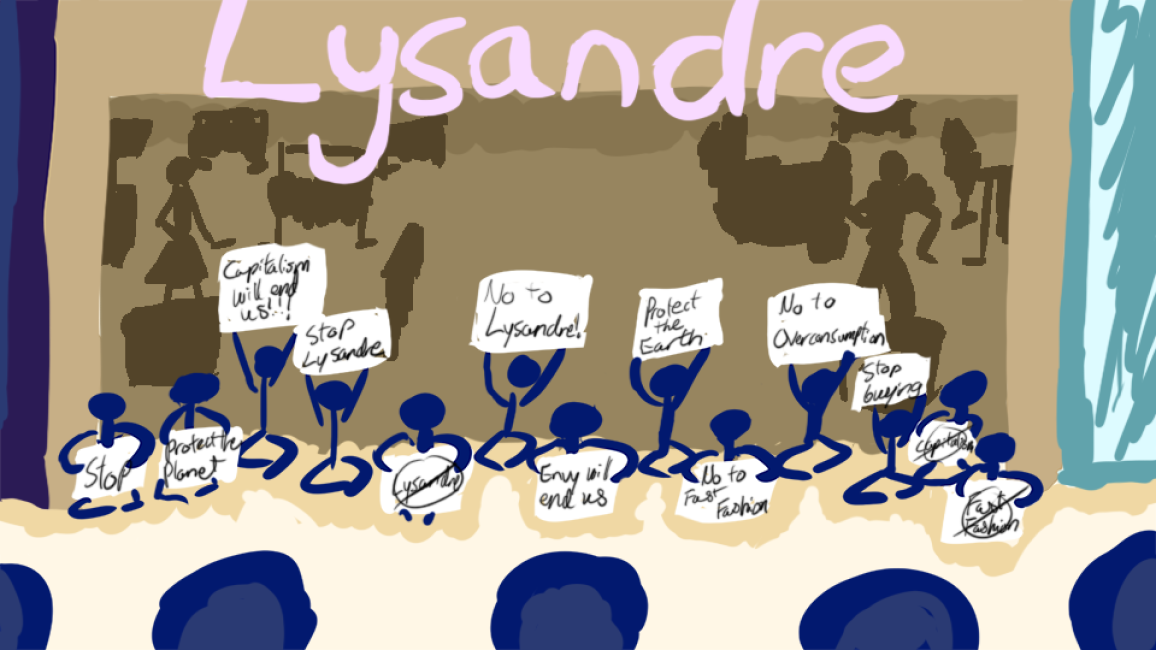 Lysandre
Capitalism
will end
us!!!
Stop
Lysandre
No to
Lysandre!
Protect
the
Earth
No to
Overconsumption
Stop
buying
Stop
Protect the
Planet
Lysandre
Envy will
end us
No to
Fast
Fashion
Capitalism
Fast
Fashion